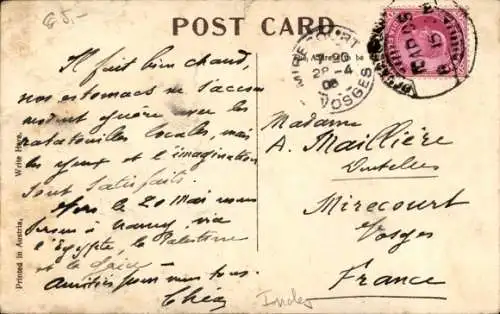 POST CARD.
Il fait bien chaud,
nos estomacs ne s'accom
modent guère avec les
ratatouilles locales, mais
les yeux et l'imagination
sont satisfaits.
Vers le 20 Mai nous
serons à Nancy, via
l'Egypte, la Palestine
et la Grèce
Amitiés pour vous tous.
Write Here.
Printed in Austria.
Address
to be
MIRECOURT
28-4
06
VOSGES
Madame
A. Maillière
Dentelles
Mirecourt
Vosges
France
Indes